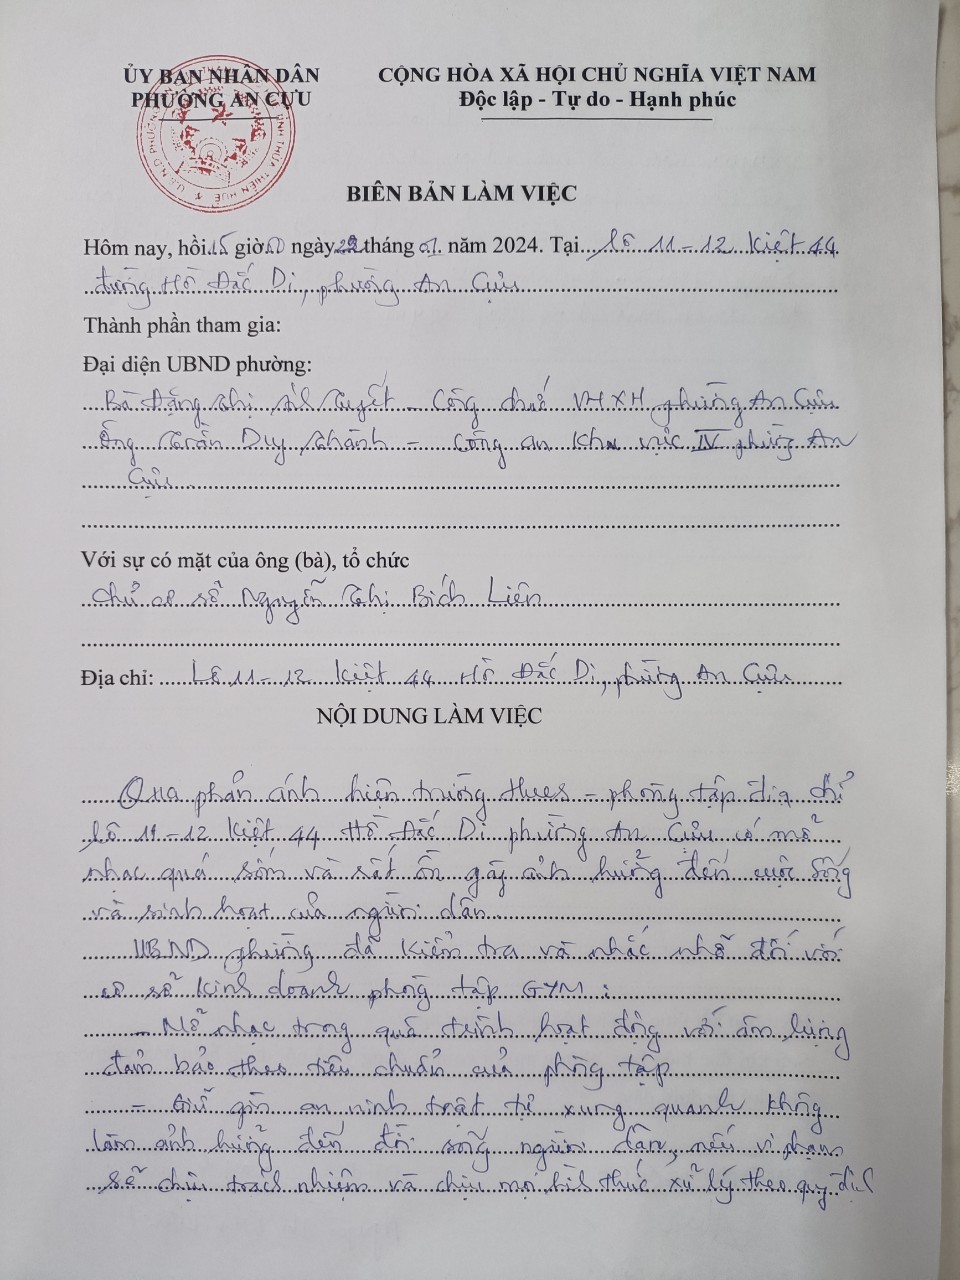 ỦY BAN NHÂN DÂN
PHƯỜNG AN CỰU
CỘNG HÒA XÃ HỘI CHỦ NGHĨA VIỆT NAM
Độc lập - Tự do - Hạnh phúc
BIÊN BẢN LÀM VIỆC
Hôm nay, hồi 15 giờ 50 ngày 22 tháng 01 năm 2024. Tại Lô 11-12 Kiệt 44
đường Hồ Đắc Di, phường An Cựu
Thành phần tham gia:
Đại diện UBND phường:
Bà Đặng Thị Tuyết - Công chức VHXH phường An Cựu
Ông Trần Duy Khánh - Công an khu vực IV phường An
Cựu
Với sự có mặt của ông (bà), tổ chức
Chủ cơ sở Nguyễn Thị Bích Liên
Địa chỉ: Lô 11-12 Kiệt 44 Hồ Đắc Di, phường An Cựu
NỘI DUNG LÀM VIỆC
Qua phản ánh hiện trường Hues - phòng tập địa chỉ
Lô 11-12 Kiệt 44 Hồ Đắc Di phường An Cựu có mở
nhạc quá sớm và rất ồn gây ảnh hưởng đến cuộc sống
và sinh hoạt của người dân
UBND phường đã kiểm tra và nhắc nhở đối với
cơ sở kinh doanh phòng tập GYM:
- Mở nhạc trong quá trình hoạt động với âm lượng
đảm bảo theo tiêu chuẩn của phòng tập
- Giữ gìn an ninh trật tự xung quanh không
làm ảnh hưởng đến đời sống người dân, nếu vi phạm
sẽ chịu trách nhiệm và chịu mọi hình thức xử lý theo quy định